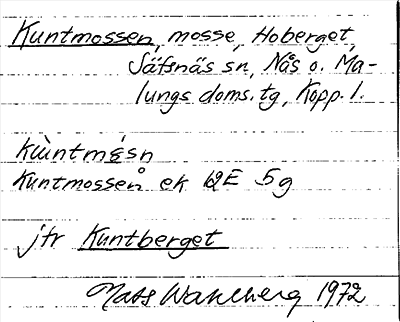 Kuntmossen, mosse, Hoberget,
Säfsnäs sn, Nås o. Ma-
lungs doms.tg, Kopp.l.
Kuntmossen ek 12E 5g
jfr Kuntberget
Mats Wahlberg 1972